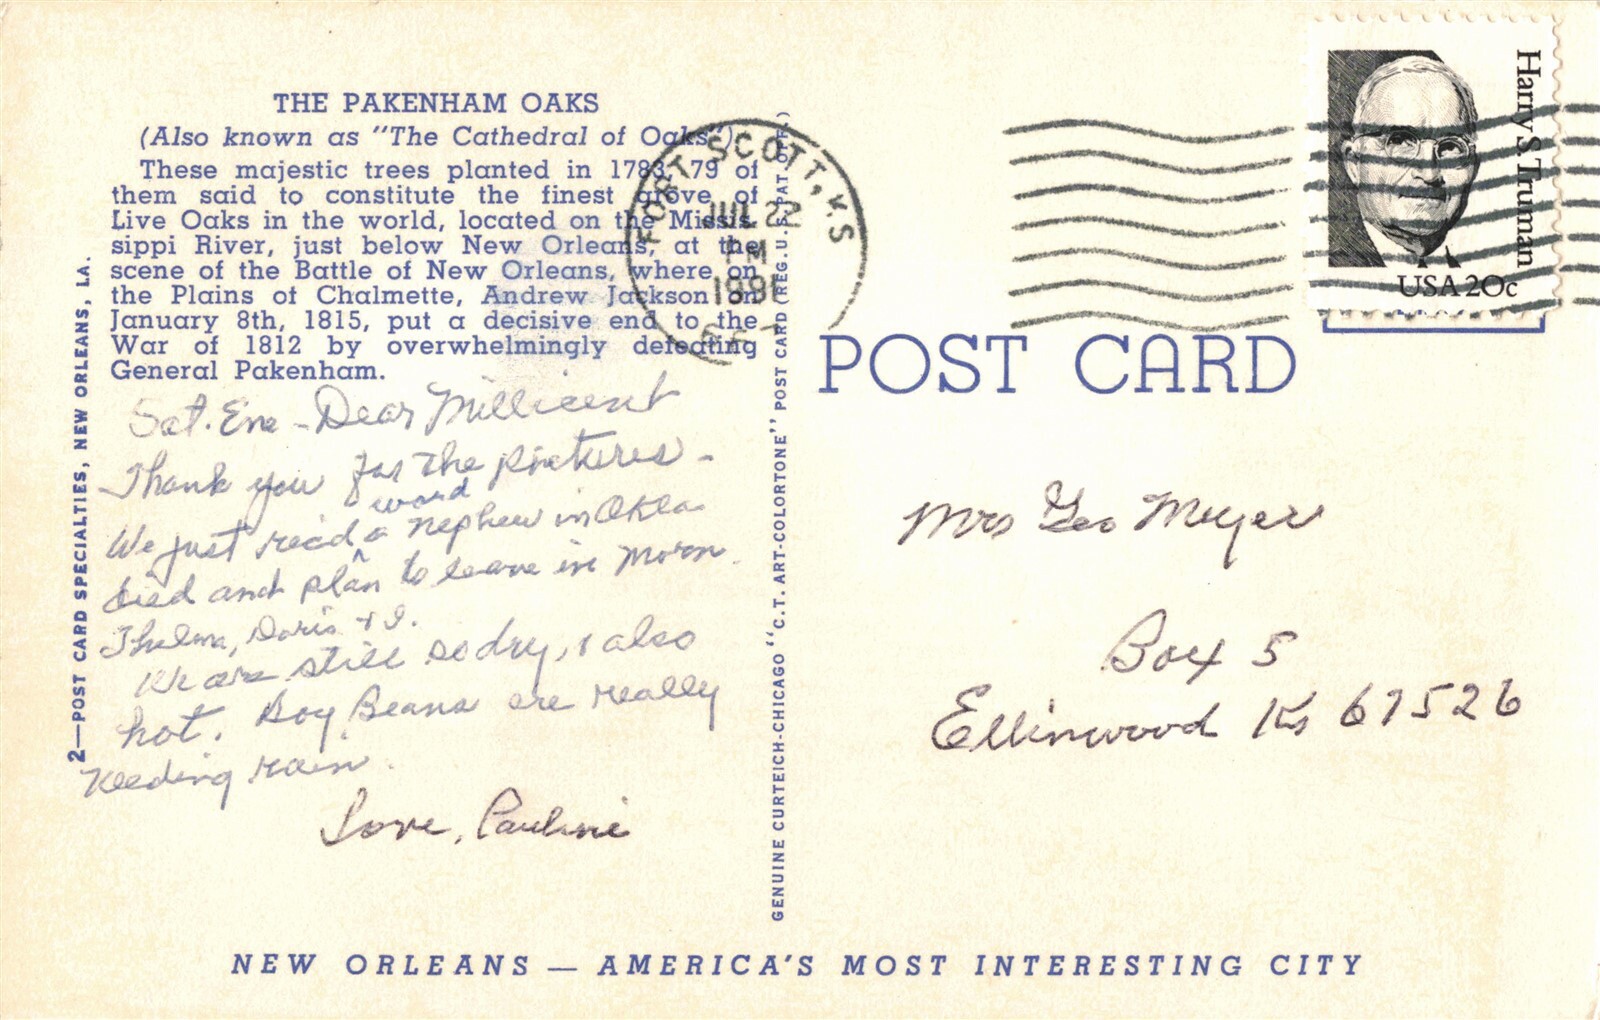 THE PAKENHAM OAKS
(Also known as "The Cathedral of Oaks")
These majestic trees planted in 1783, 79 of
them said to constitute the finest grove of
Live Oaks in the world, located on the Missis-
sippi River, just below New Orleans, at the
scene of the Battle of New Orleans, where on
the Plains of Chalmette, Andrew Jackson on
January 8th, 1815, put a decisive end to the
War of 1812 by overwhelmingly defeating
General Pakenham.
Sat. Eve - Dear Millicent
Thank you for the pictures -
word
We just recd a nephew in Okla.
died and plan to leave in Morn.
Thelma, Doris + I.
We are still so dry, & also
hot. Soy Beans are really
needing rain.
Love, Pauline
2—POST CARD SPECIALTIES, NEW ORLEANS, LA.
GENUINE CURTEICH-CHICAGO "C.T. ART-COLORTONE" POST CARD (REG. U.S. PAT. OFF.)
FORT SCOTT, KS
JUL 22
PM
POST CARD
Harry S Truman
USA 20c
Mrs Geo Meyer
Box 5
Ellinwood Ks 67526
NEW ORLEANS — AMERICA'S MOST INTERESTING CITY